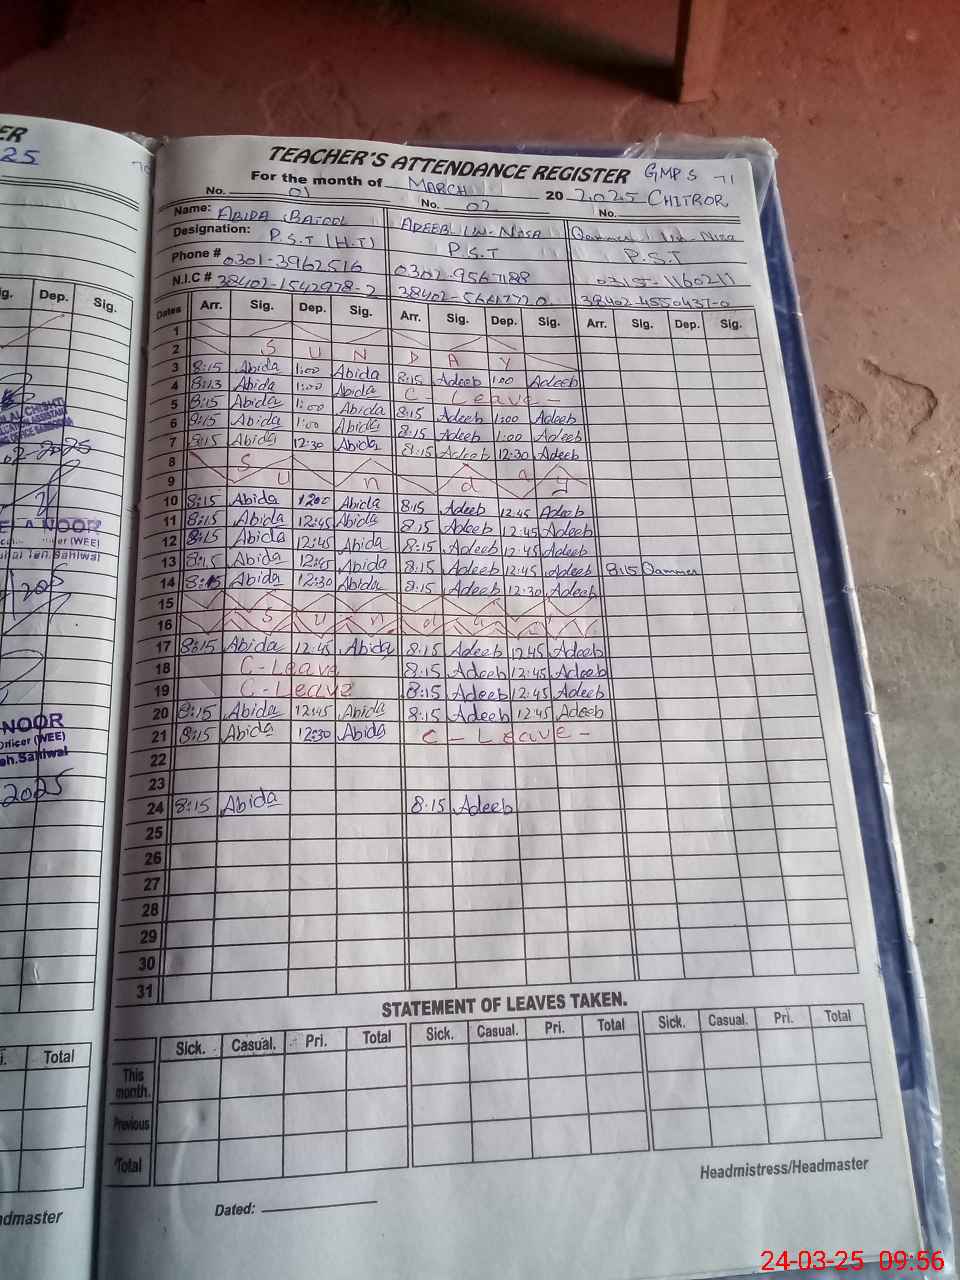 ER
25
TEACHER'S ATTENDANCE REGISTER GMPS 71
For the month of MARCH 20 2025 CHITROR
No. 01 No. 02 No.
Name: ABIDA BATOOL ADEEB UN-NISA Qammer Un-Nisa
Designation: P.S.T (H.T) P.S.T P.S.T
Phone # 0301-3962516 0302-9567188 0315-1160211
N.I.C # 38402-1542978-2
Dates Arr. Sig. Dep. Sig. Arr. Sig. Dep. Sig. Arr. Sig. Dep. Sig.
1
2 S U N D A Y
3 8:15 Abida 1:00 Abida 8:15 Adeeb 1:00 Adeeb
4 8:13 Abida 1:00 Abida C - Leave -
5 8:15 Abida 1:00 Abida 8:15 Adeeb 1:00 Adeeb
6 8:15 Abida 1:00 Abida 8:15 Adeeb 1:00 Adeeb
7 8:15 Abida 12:30 Abida 8:15 Adeeb 12:30 Adeeb
8
9 S u n d a y
10 8:15 Abida 1200 Abida 8:15 Adeeb 12:45 Adeeb
11 8:15 Abida 12:45 Abida 8:15 Adeeb 12:45 Adeeb
12 8:15 Abida 12:45 Abida 8:15 Adeeb 12:45 Adeeb
13 8:15 Abida 12:45 Abida 8:15 Adeeb 12:45 Adeeb 8:15 Qammer
14 8:15 Abida 12:30 Abida 8:15 Adeeb 12:30 Adeeb
15
16 S u n d a y
17 8:15 Abida 12:45 Abida 8:15 Adeeb 12:45 Adeeb
18 C-Leave 8:15 Adeeb 12:45 Adeeb
19 C-Leave 8:15 Adeeb 12:45 Adeeb
20 8:15 Abida 12:45 Abida 8:15 Adeeb 12:45 Adeeb
21 8:15 Abida 12:30 Abida C - Leave -
22
23
24 8:15 Abida 8:15 Adeeb
25
26
27
28
29
30
31
STATEMENT OF LEAVES TAKEN.
Sick. Casual. Pri. Total Sick. Casual. Pri. Total Sick. Casual. Pri. Total
This month.
Previous
Total
Headmistress/Headmaster
Dated:
ig. Dep. Sig.
NOOR
(WEE)
Sahiwal
NOOR
Officer (WEE)
eh.Sahiwal
2025
i. Total
admaster
24-03-25 09:56